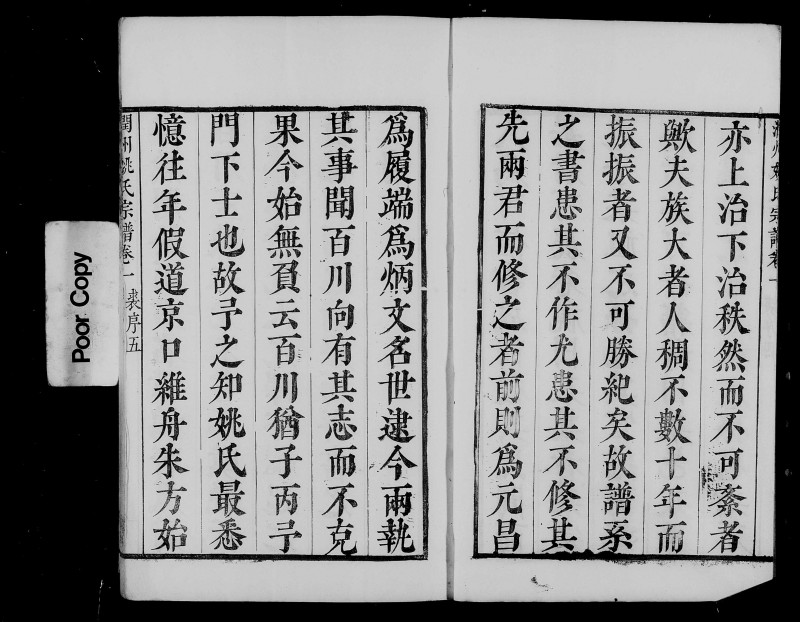 潤州姚氏宗譜卷一
亦上治下治秩然而不可紊者
歟夫族大者人稠不數十年而
振振者又不可勝紀矣故譜系
之書患其不作尤患其不修其
先兩君而修之者前則為元昌
為履端為炳文名世逮今兩執
其事聞百川向有其志而不克
果今始無負云百川猶子丙予
門下士也故予之知姚氏最悉
憶往年假道京口維舟朱方始
潤州姚氏宗譜卷一 裘序五
Poor Copy